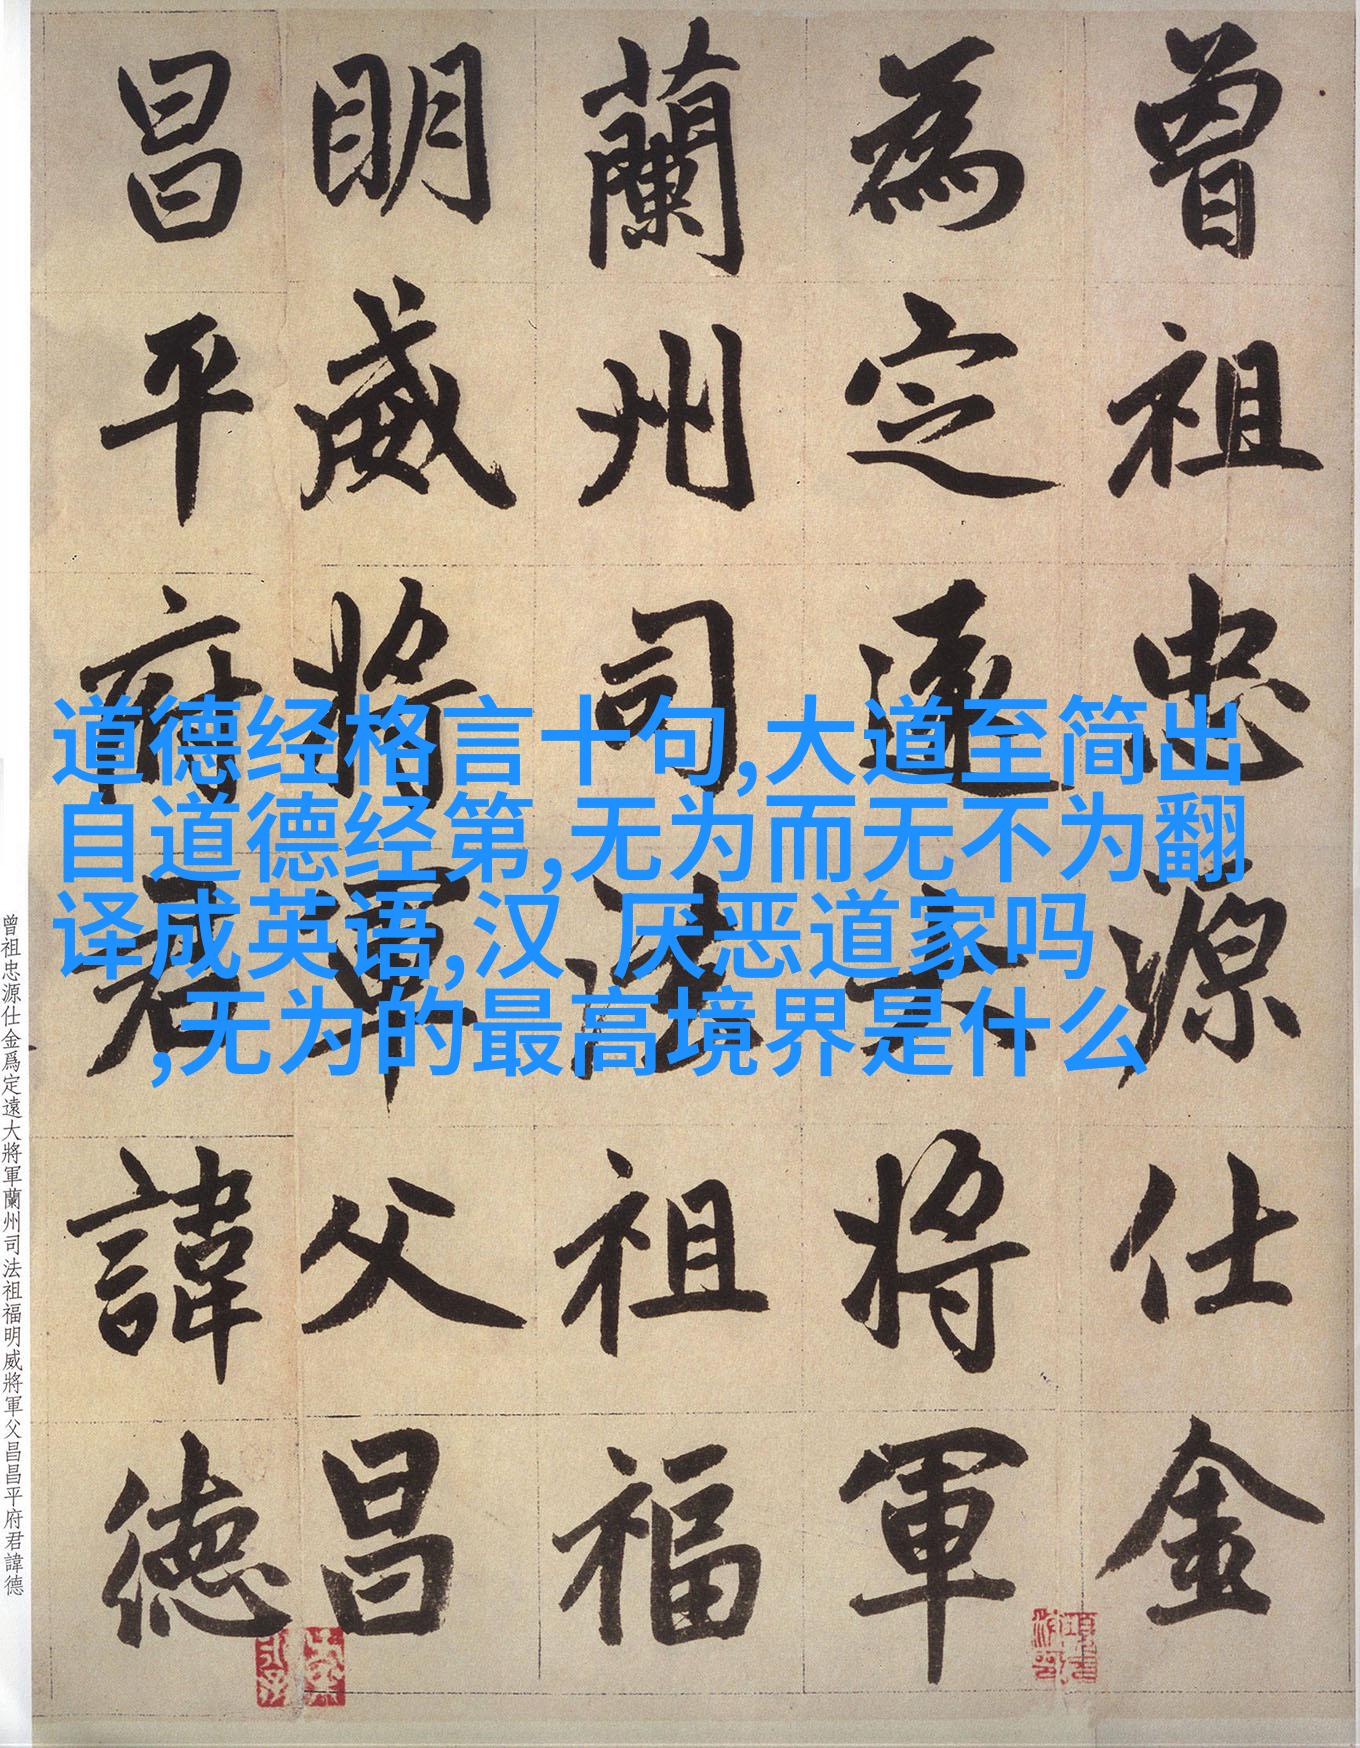 曾祖忠源仕金
為定遠大將軍
蘭州司法祖福
明威將軍父昌
昌平府君諱德
道德经格言十句,大道至简出
自道德经第,无为而无不为翻
译成英语,汉 厌恶道家吗
,无为的最高境界是什么
曾祖忠源仕金爲定遠大將軍蘭州司法祖福明威將軍父昌昌平府君諱德